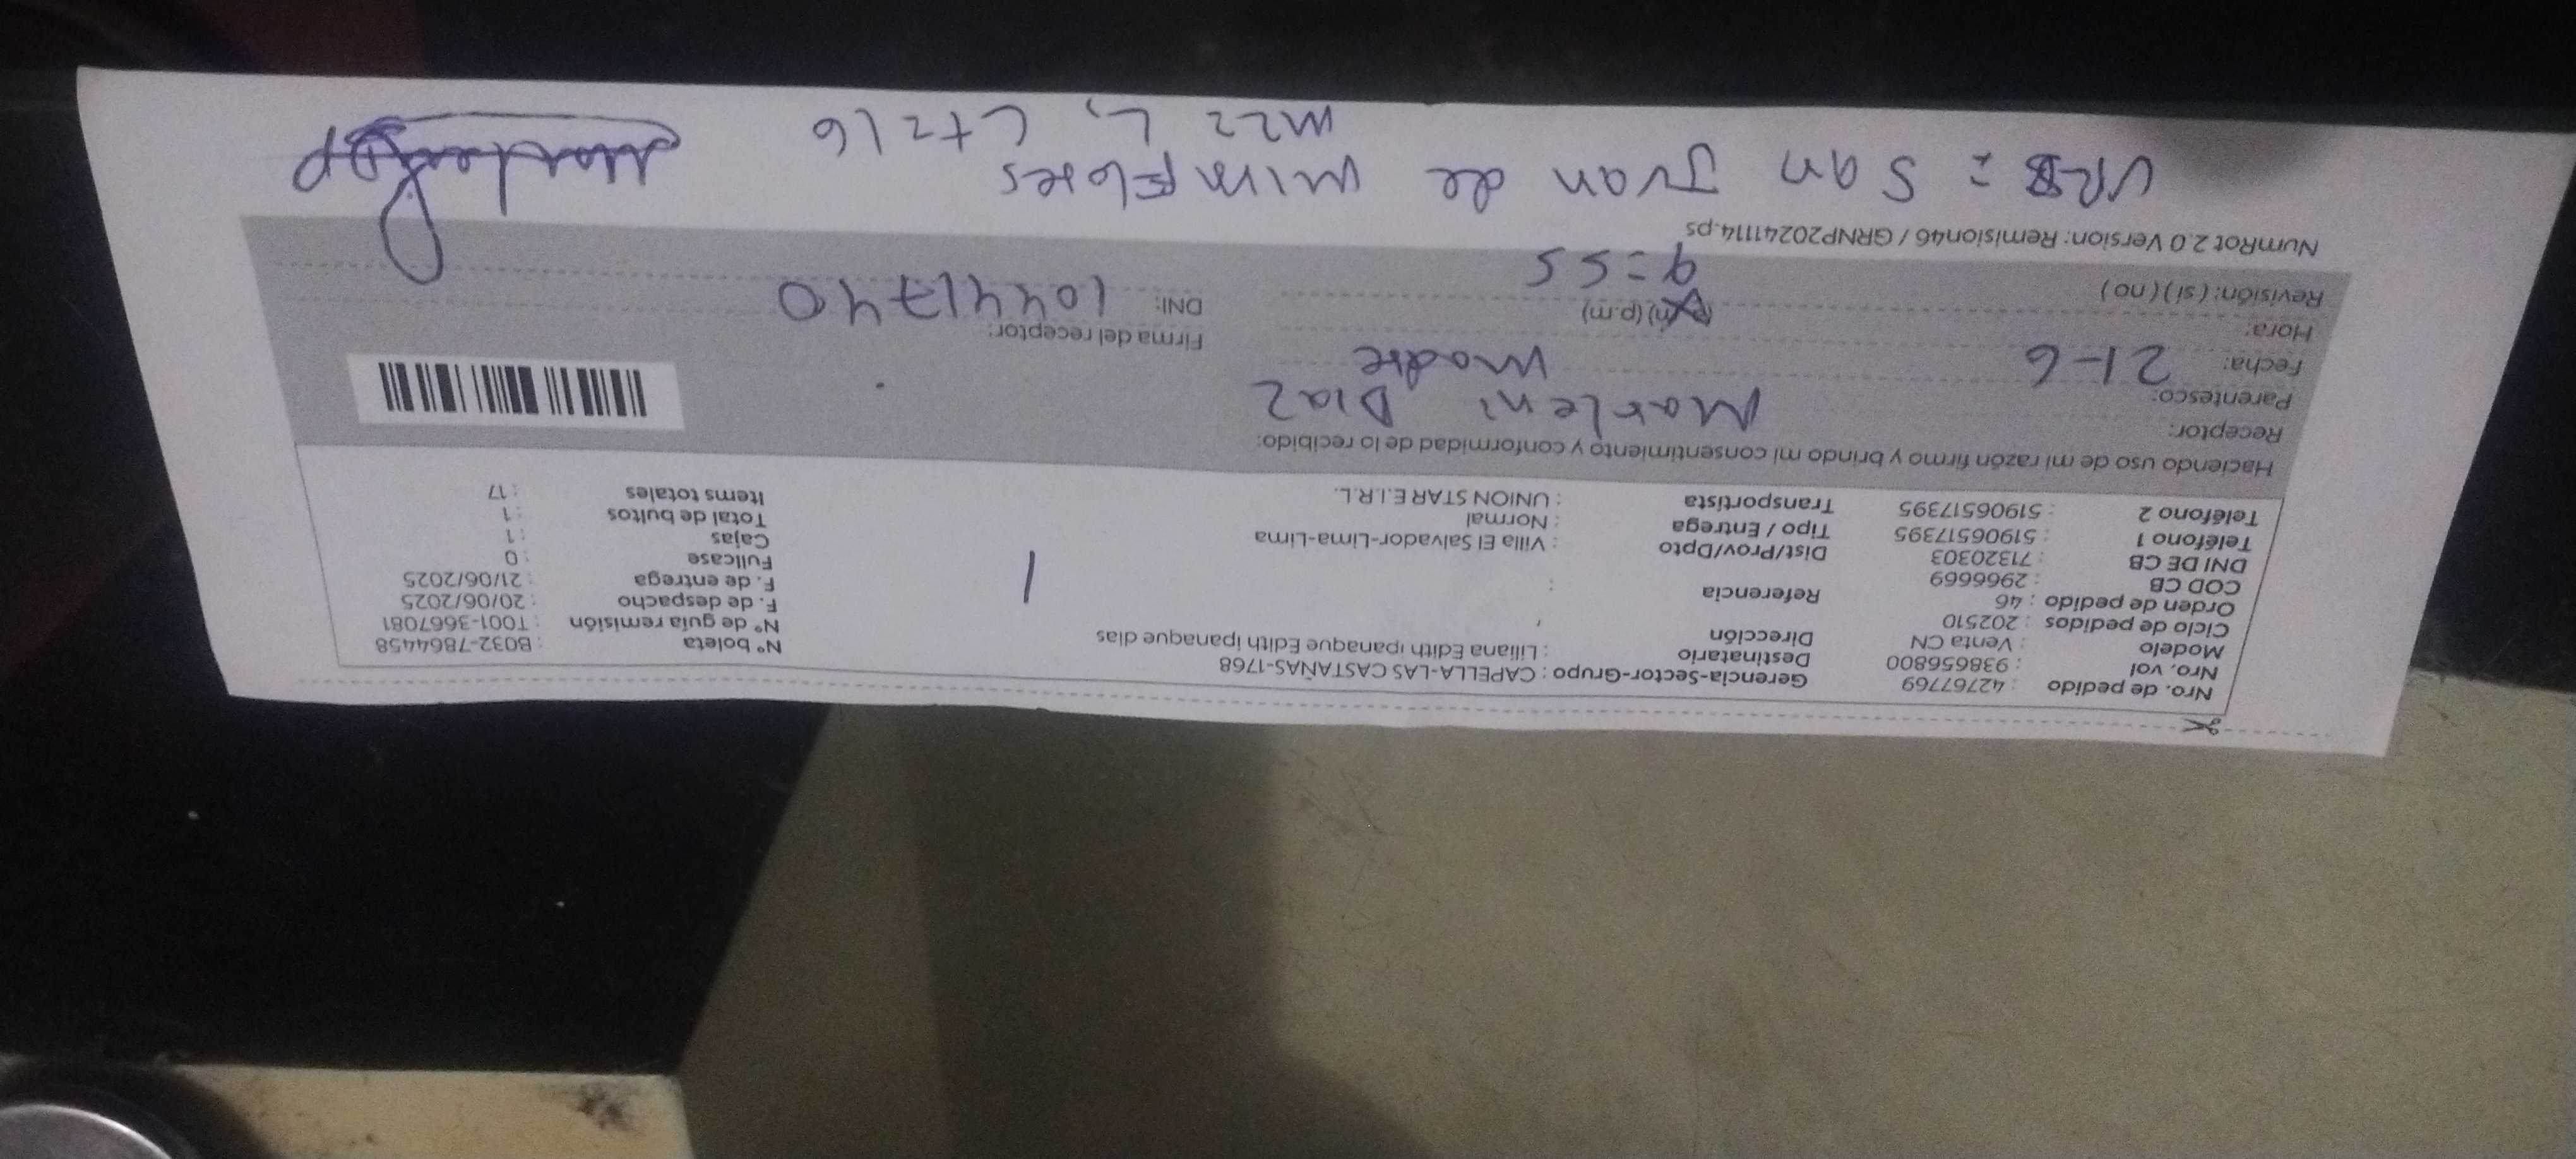 Nro. de pedido : 42767769
Nro. vol : 938656800
Modelo : Venta CN
Ciclo de pedidos : 202510
Orden de pedido : 46
COD CB : 2966669
DNI DE CB : 71320303
Teléfono 1 : 51906517395
Teléfono 2 : 51906517395
Gerencia-Sector-Grupo : CAPELLA-LAS CASTAÑAS-1768
Destinatario : Liliana Edith ipanaque Edith ipanaque dias
Dirección ,
Referencia :
Dist/Prov/Dpto : Villa El Salvador-Lima-Lima
Tipo / Entrega : Normal
Transportista : UNION STAR E.I.R.L.
1
N° boleta : B032-7864458
N° de guía remisión : T001-3667081
F. de despacho : 20/06/2025
F. de entrega : 21/06/2025
Fullcase : 0
Cajas : 1
Total de bultos : 1
Items totales : 17
Haciendo uso de mi razón firmo y brindo mi consentimiento y conformidad de lo recibido:
Receptor: Marleni Diaz
Parentesco: madre
Fecha: 21-6
Hora: (p.m) 9=55
Revisión: (si) (no)
Firma del receptor:
DNI: 10441740
NumRot 2.0 Version: Remision46 / GRNP20241114.ps
URB = San Juan de mirmFlores
mzz L, Lt=16